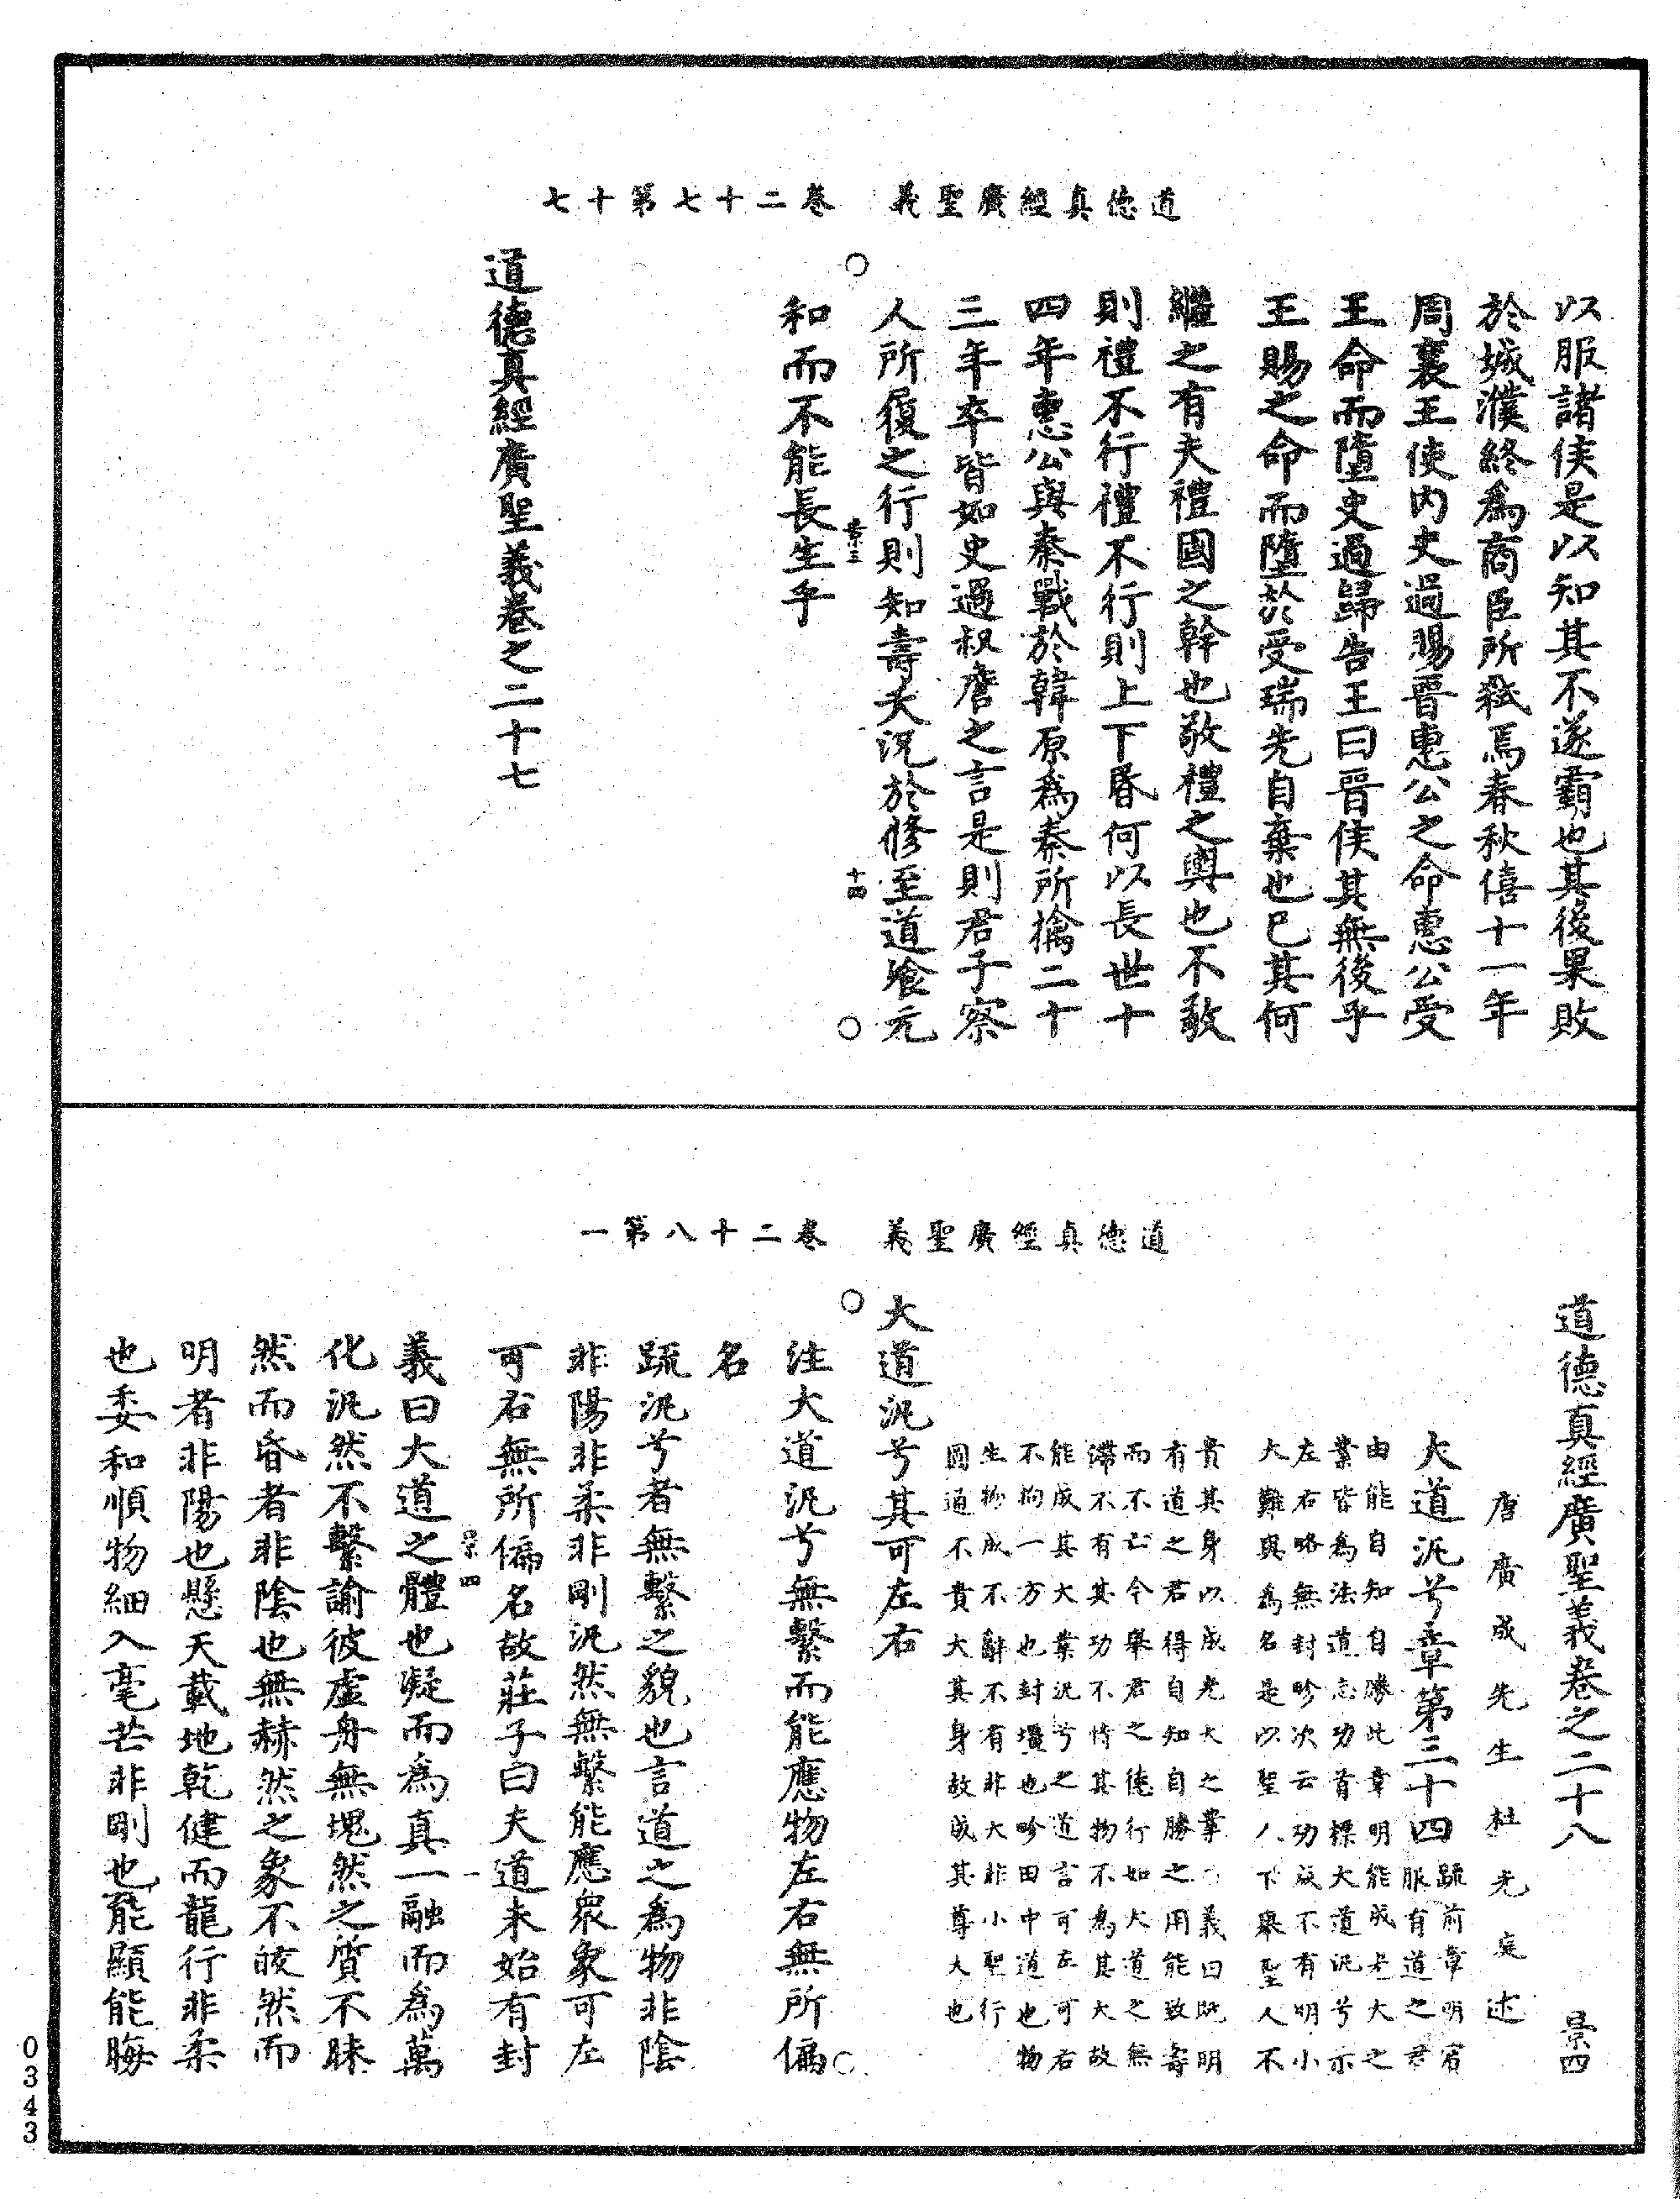 道德真經廣聖義　卷二十七第十七
以服諸侯是以知其不遂霸也其後果敗
於城濮終為商臣所弒焉春秋僖十一年
周襄王使內史過賜晉惠公之命惠公受
王命而墮史過歸告王曰晉侯其無後乎
王賜之命而墮於受瑞先自棄也已其何
繼之有夫禮國之幹也敬禮之輿也不敬
則禮不行禮不行則上下昬何以長世十
四年惠公與秦戰於韓原為秦所擒二十
三年卒皆如史過叔詹之言是則君子察
人所履之行則知壽夭況於修至道飡元
景三　十四
和而不能長生乎
道德真經廣聖義卷之二十七
道德真經廣聖義　卷二十八第一
道德真經廣聖義卷之二十八　景四
唐廣成先生杜光庭述
大道汎兮章第三十四
疏前章明賓
服有道之君
由能自知自勝此章明能成光大之
業皆為法道忘功首摽大道汎兮示
左右略無封畛次云功成不有明小
大難與為名是以聖人下舉聖人不
貴其身以成光大之業義曰既明
有道之君得自知自勝之用能致壽
而不亡今舉君之德行如大道之無
滯不有其功不恃其物不為其大故
能成其大業汎兮之道言可左可右
不拘一方也封壃也畛田中道也物
生物成不辭不有非大非小聖行
圓通不貴大其身故成其尊大也
大道汎兮其可左右
注大道汎兮無繫而能應物左右無所偏
名
疏汎兮者無繫之貌也言道之為物非陰
非陽非柔非剛汎然無繫能應衆象可左
可右無所偏名故莊子曰夫道未始有封
景四　一
義曰大道之體也凝而為真一融而為萬
化汎然不繫諭彼虛舟無塊然之質不昧
然而昏者非陰也無赫然之象不皎然而
明者非陽也懸天載地乾健而龍行非柔
也委和順物細入毫芒非剛也能顯能晦
0343